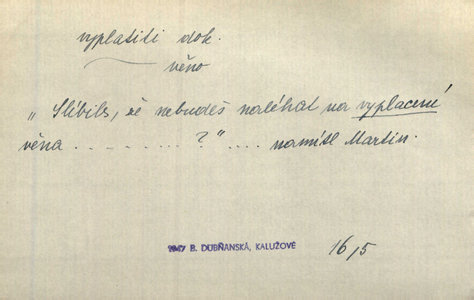 vyplatiti dok.
věno
„Slíbils, že nebudeš naléhat na vyplacení
věna . . . . . . . . ?" .... namítl Martin.
1947 B. DUBŇANSKÁ, KALUŽOVÉ
16/5